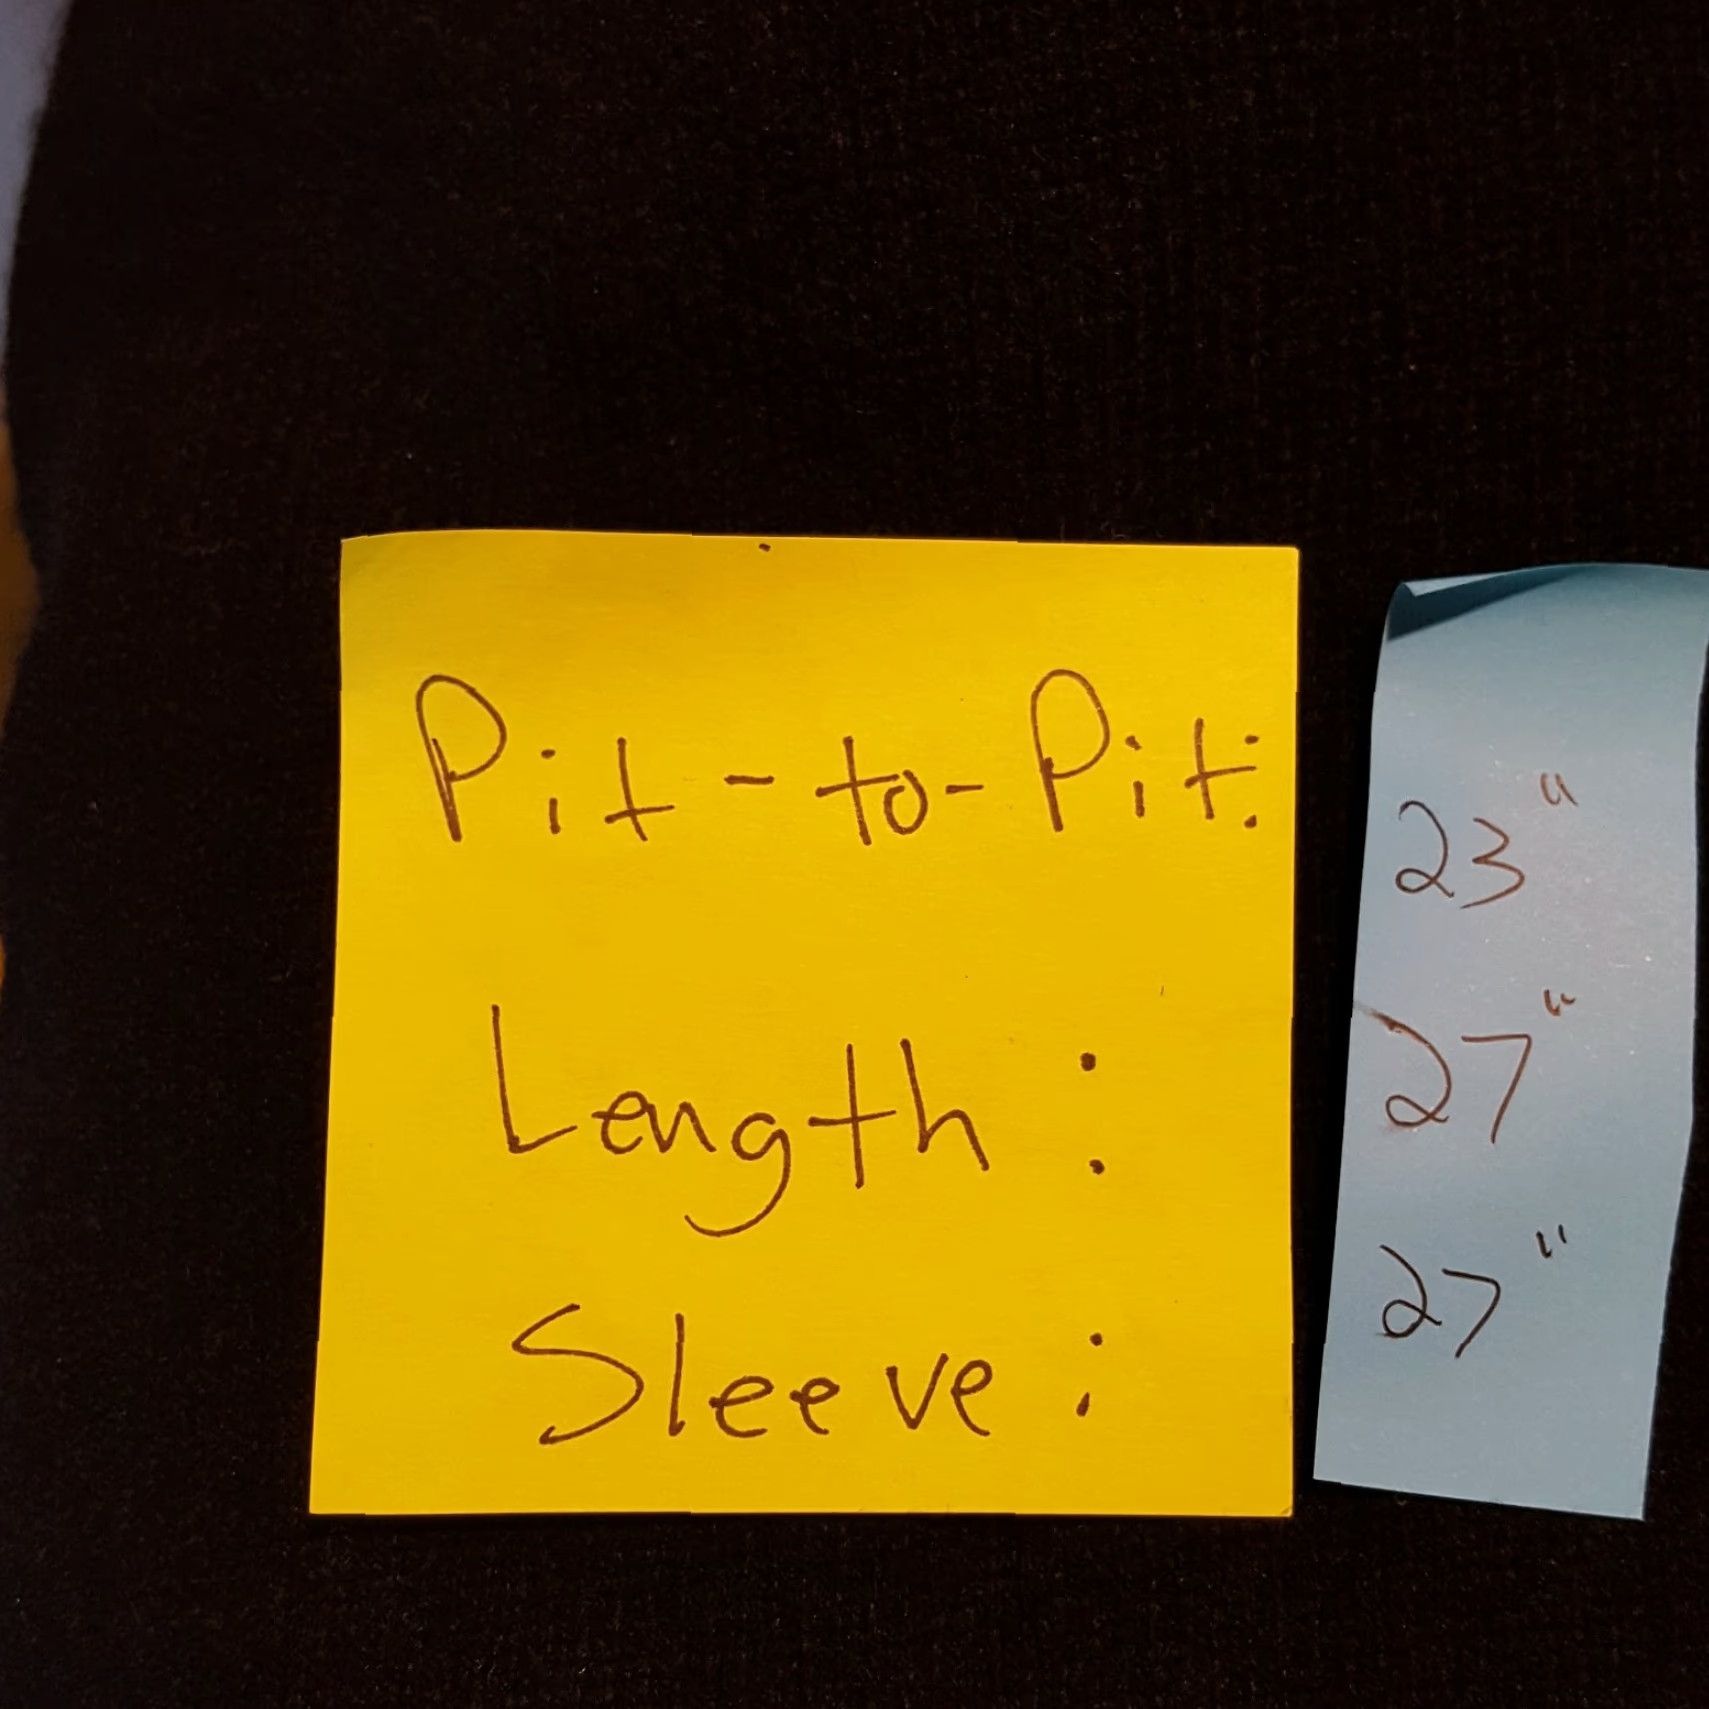 Pit-to-Pit: 23"
Length: 27"
Sleeve: 27"